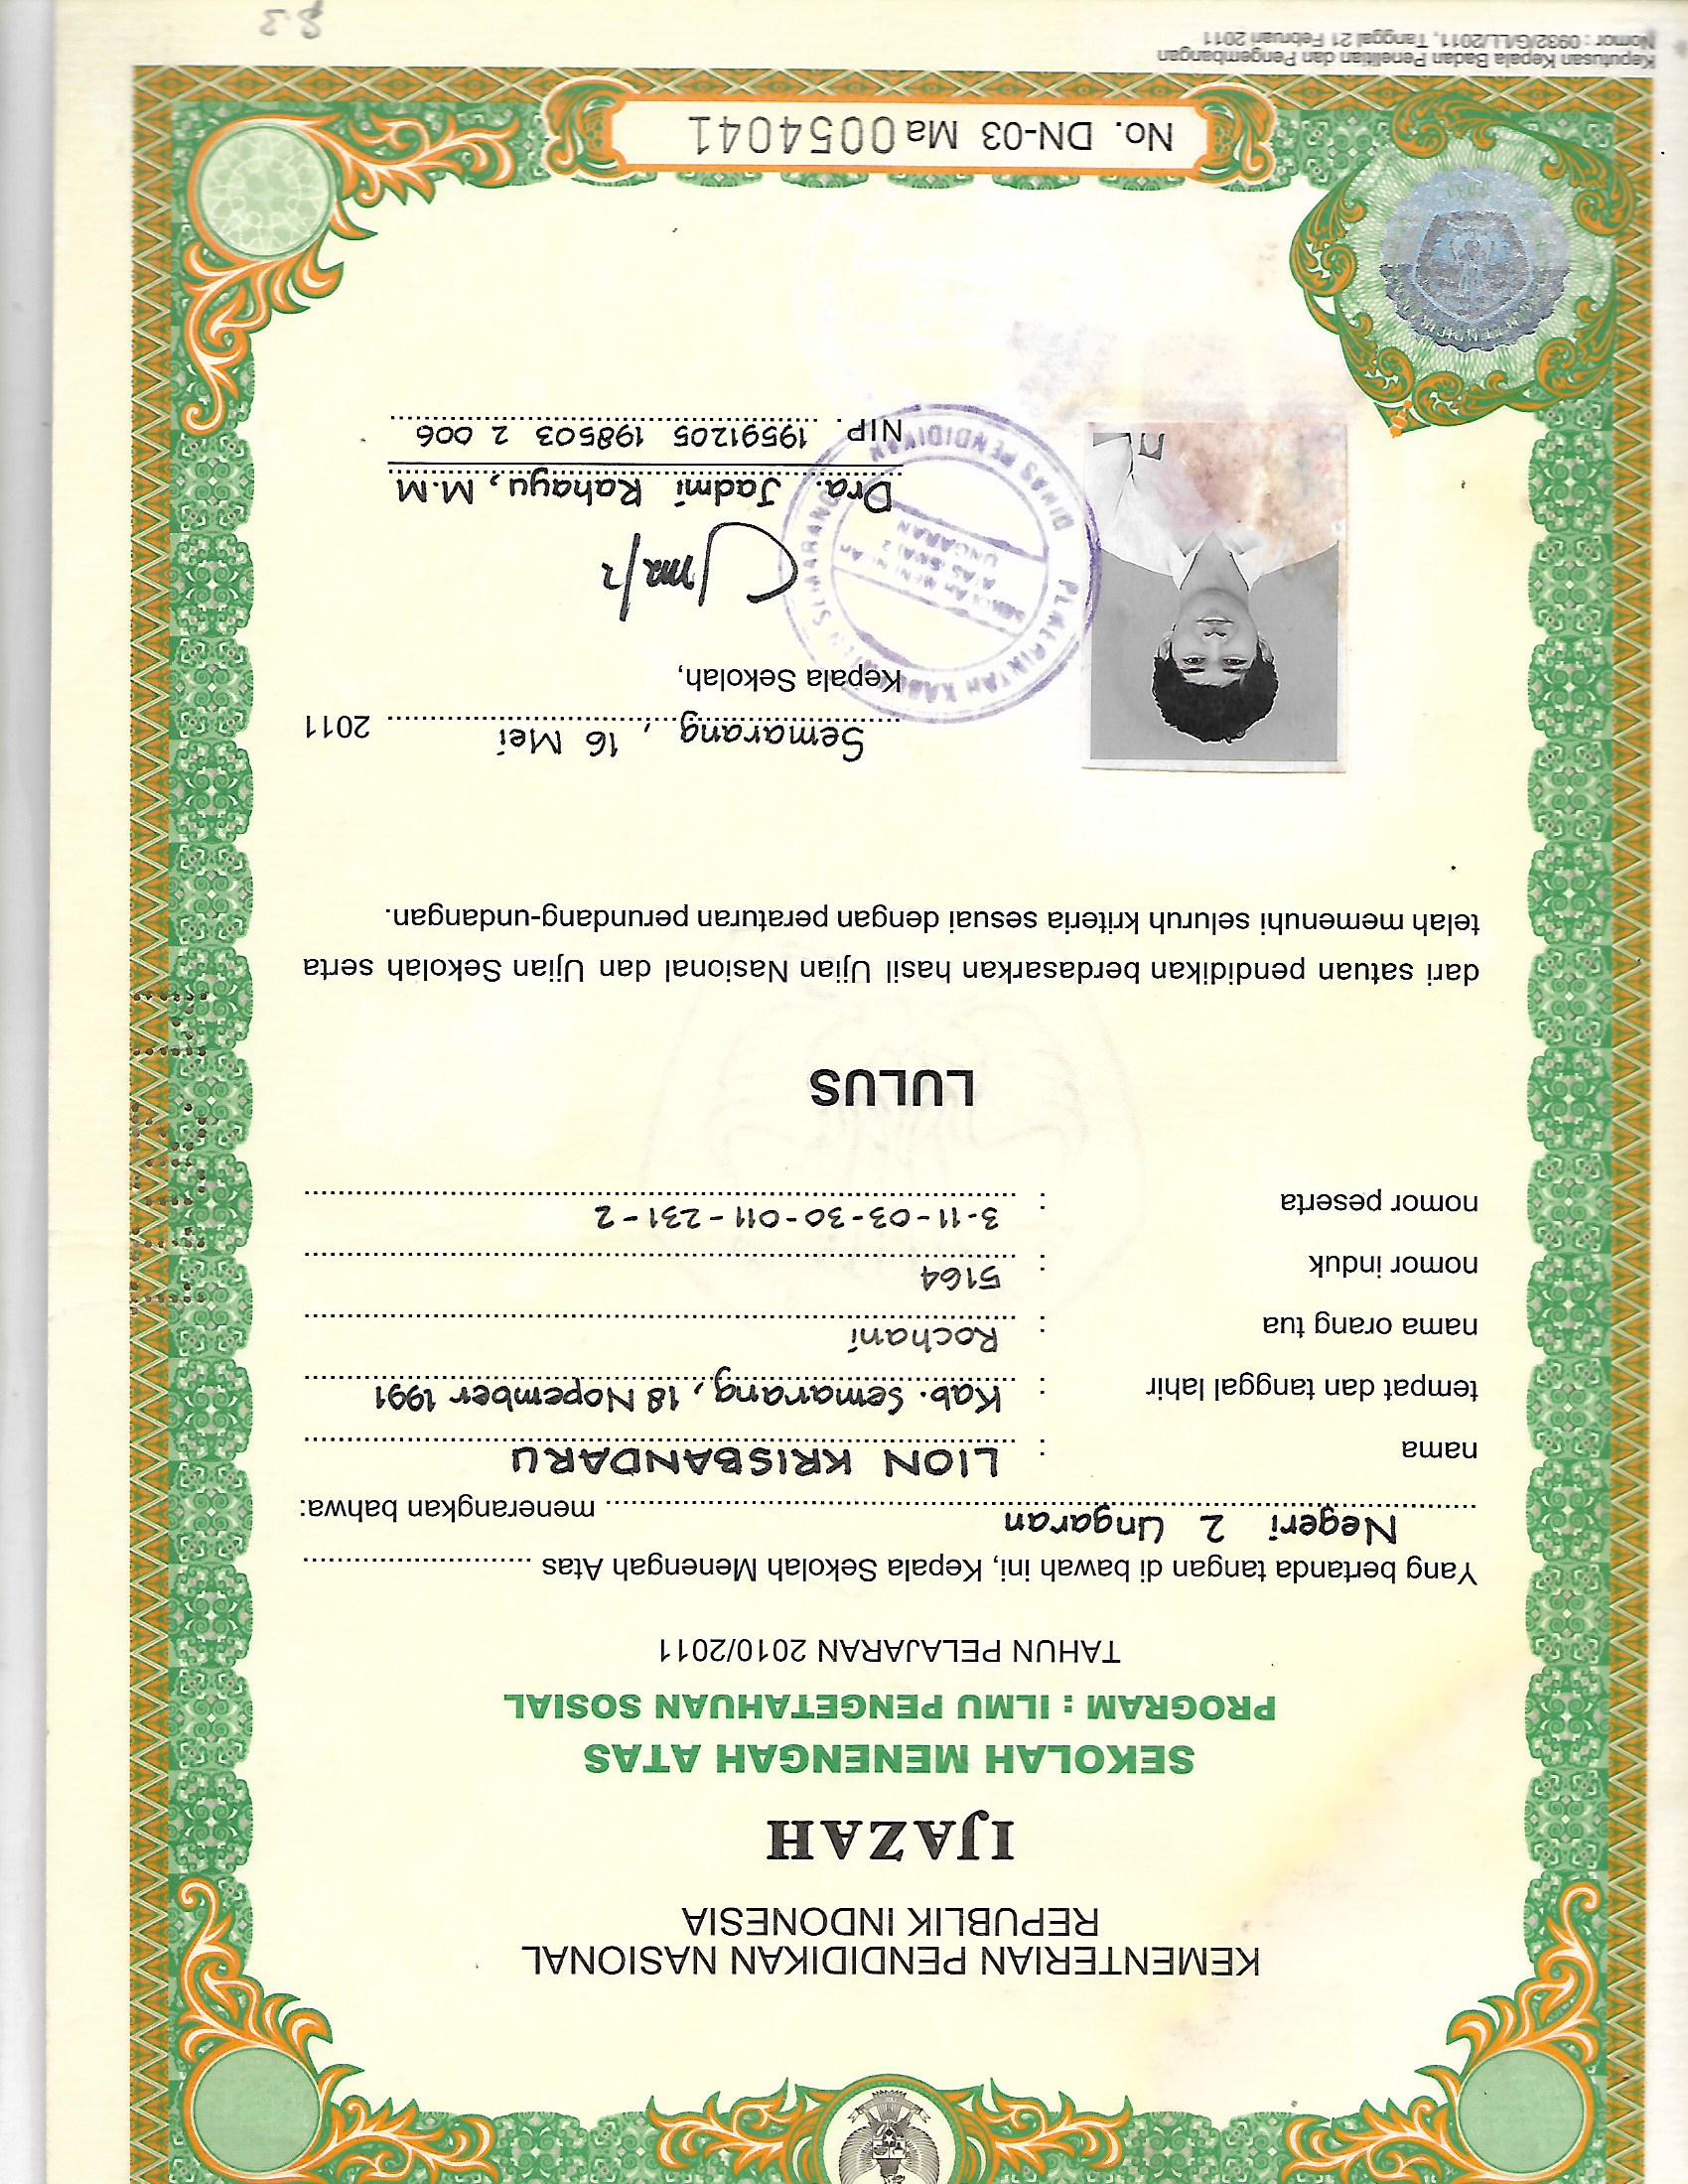 KEMENTERIAN PENDIDIKAN NASIONAL
REPUBLIK INDONESIA
IJAZAH
SEKOLAH MENENGAH ATAS
PROGRAM : ILMU PENGETAHUAN SOSIAL
TAHUN PELAJARAN 2010/2011
Yang bertanda tangan di bawah ini, Kepala Sekolah Menengah Atas ...........................
Negeri 2 Ungaran menerangkan bahwa:
nama : LION KRISBANDARU
tempat dan tanggal lahir : Kab. Semarang, 18 Nopember 1991
nama orang tua : Rochani
nomor induk : 5164
nomor peserta : 3-11-03-30-011-231-2
LULUS
dari satuan pendidikan berdasarkan hasil Ujian Nasional dan Ujian Sekolah serta
telah memenuhi seluruh kriteria sesuai dengan peraturan perundang-undangan.
Semarang, 16 Mei 2011
Kepala Sekolah,
PEMERINTAH KABUPATEN SEMARANG
SEKOLAH MENENGAH
ATAS (SMA) 2
UNGARAN
DINAS PENDIDIKAN
Dra. Jadmi Rahayu, M.M
NIP. 19591205 198503 2 006
No. DN-03 Ma 0054041
Keputusan Kepala Badan Penelitian dan Pengembangan
Nomor : 0932/G/LL/2011, Tanggal 21 Februari 2011